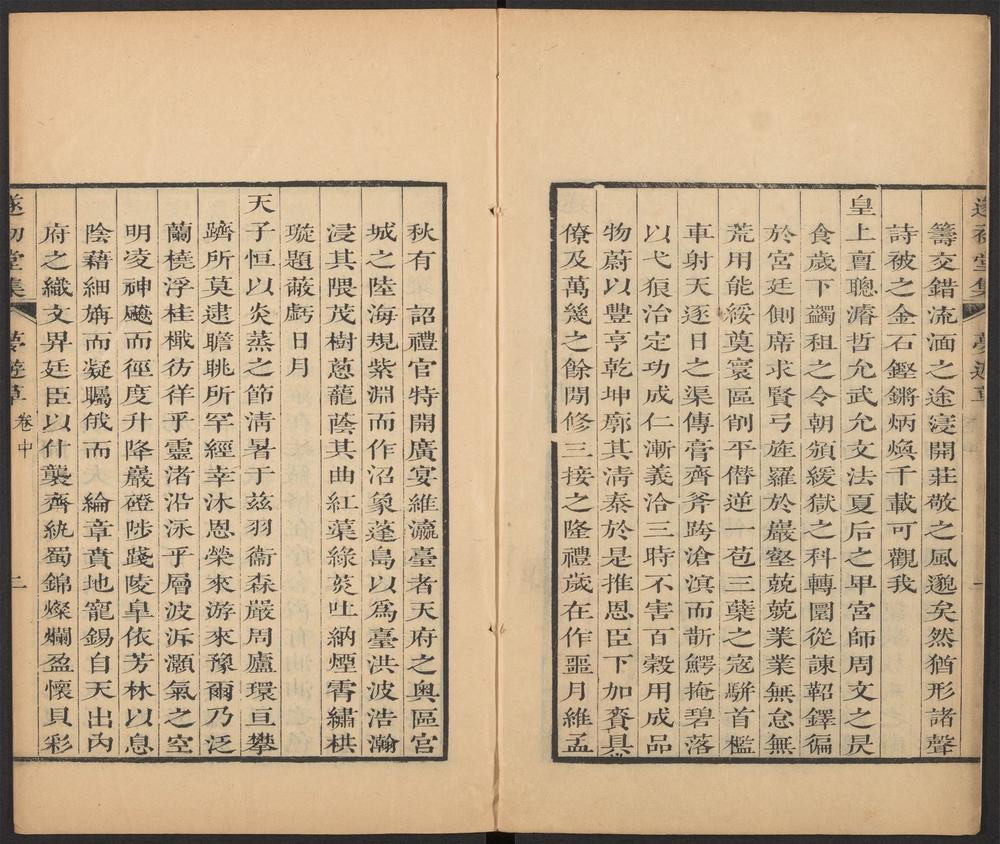 籌交錯流湎之途寖開莊敬之風邈矣然猶形諸聲
詩被之金石鏗鏘炳煥千載可觀我
皇上亶聰濬哲允武允文法夏后之卑宮師周文之昃
食歲下蠲租之令朝頒緩獄之科轉圜從諫鞀鐸徧
於宮廷側席求賢弓旌羅於巖壑兢兢業業無怠無
荒用能綏奠寰區削平僭逆一苞三蘖之寇駢首檻
車射天逐日之渠傳膏齊斧跨滄溟而斮鰐掩碧落
以弋狼治定功成仁漸義洽三時不害百穀用成品
物蔚以豐亨乾坤廓其淸泰於是推恩臣下加賚具
僚及萬幾之餘閒修三接之隆禮歲在作噩月維孟
秋有 詔禮官特開廣宴維瀛臺者天府之奧區宮
城之陸海規紫淵而作沼象蓬島以爲臺洪波浩瀚
浸其隈茂樹蔥蘢蔭其曲紅蕖綠芡吐納煙霄繡栱
璇題蔽虧日月
天子恒以炎蒸之節淸暑于茲羽衞森嚴周廬環亘攀
躋所莫逮瞻眺所罕經幸沐恩榮來游來豫爾乃泛
蘭橈浮桂檝彷徉乎靈渚沿泳乎層波泝灝氣之空
明凌神飈而徑度升降巖磴陟踐陵皐依芳林以息
陰藉細旃而凝矚俄而 綸章賁地寵錫自天出內
府之織文畀廷臣以什襲齊紈蜀錦燦爛盈懷貝彩
遂初堂集 夢遊草 卷中 二